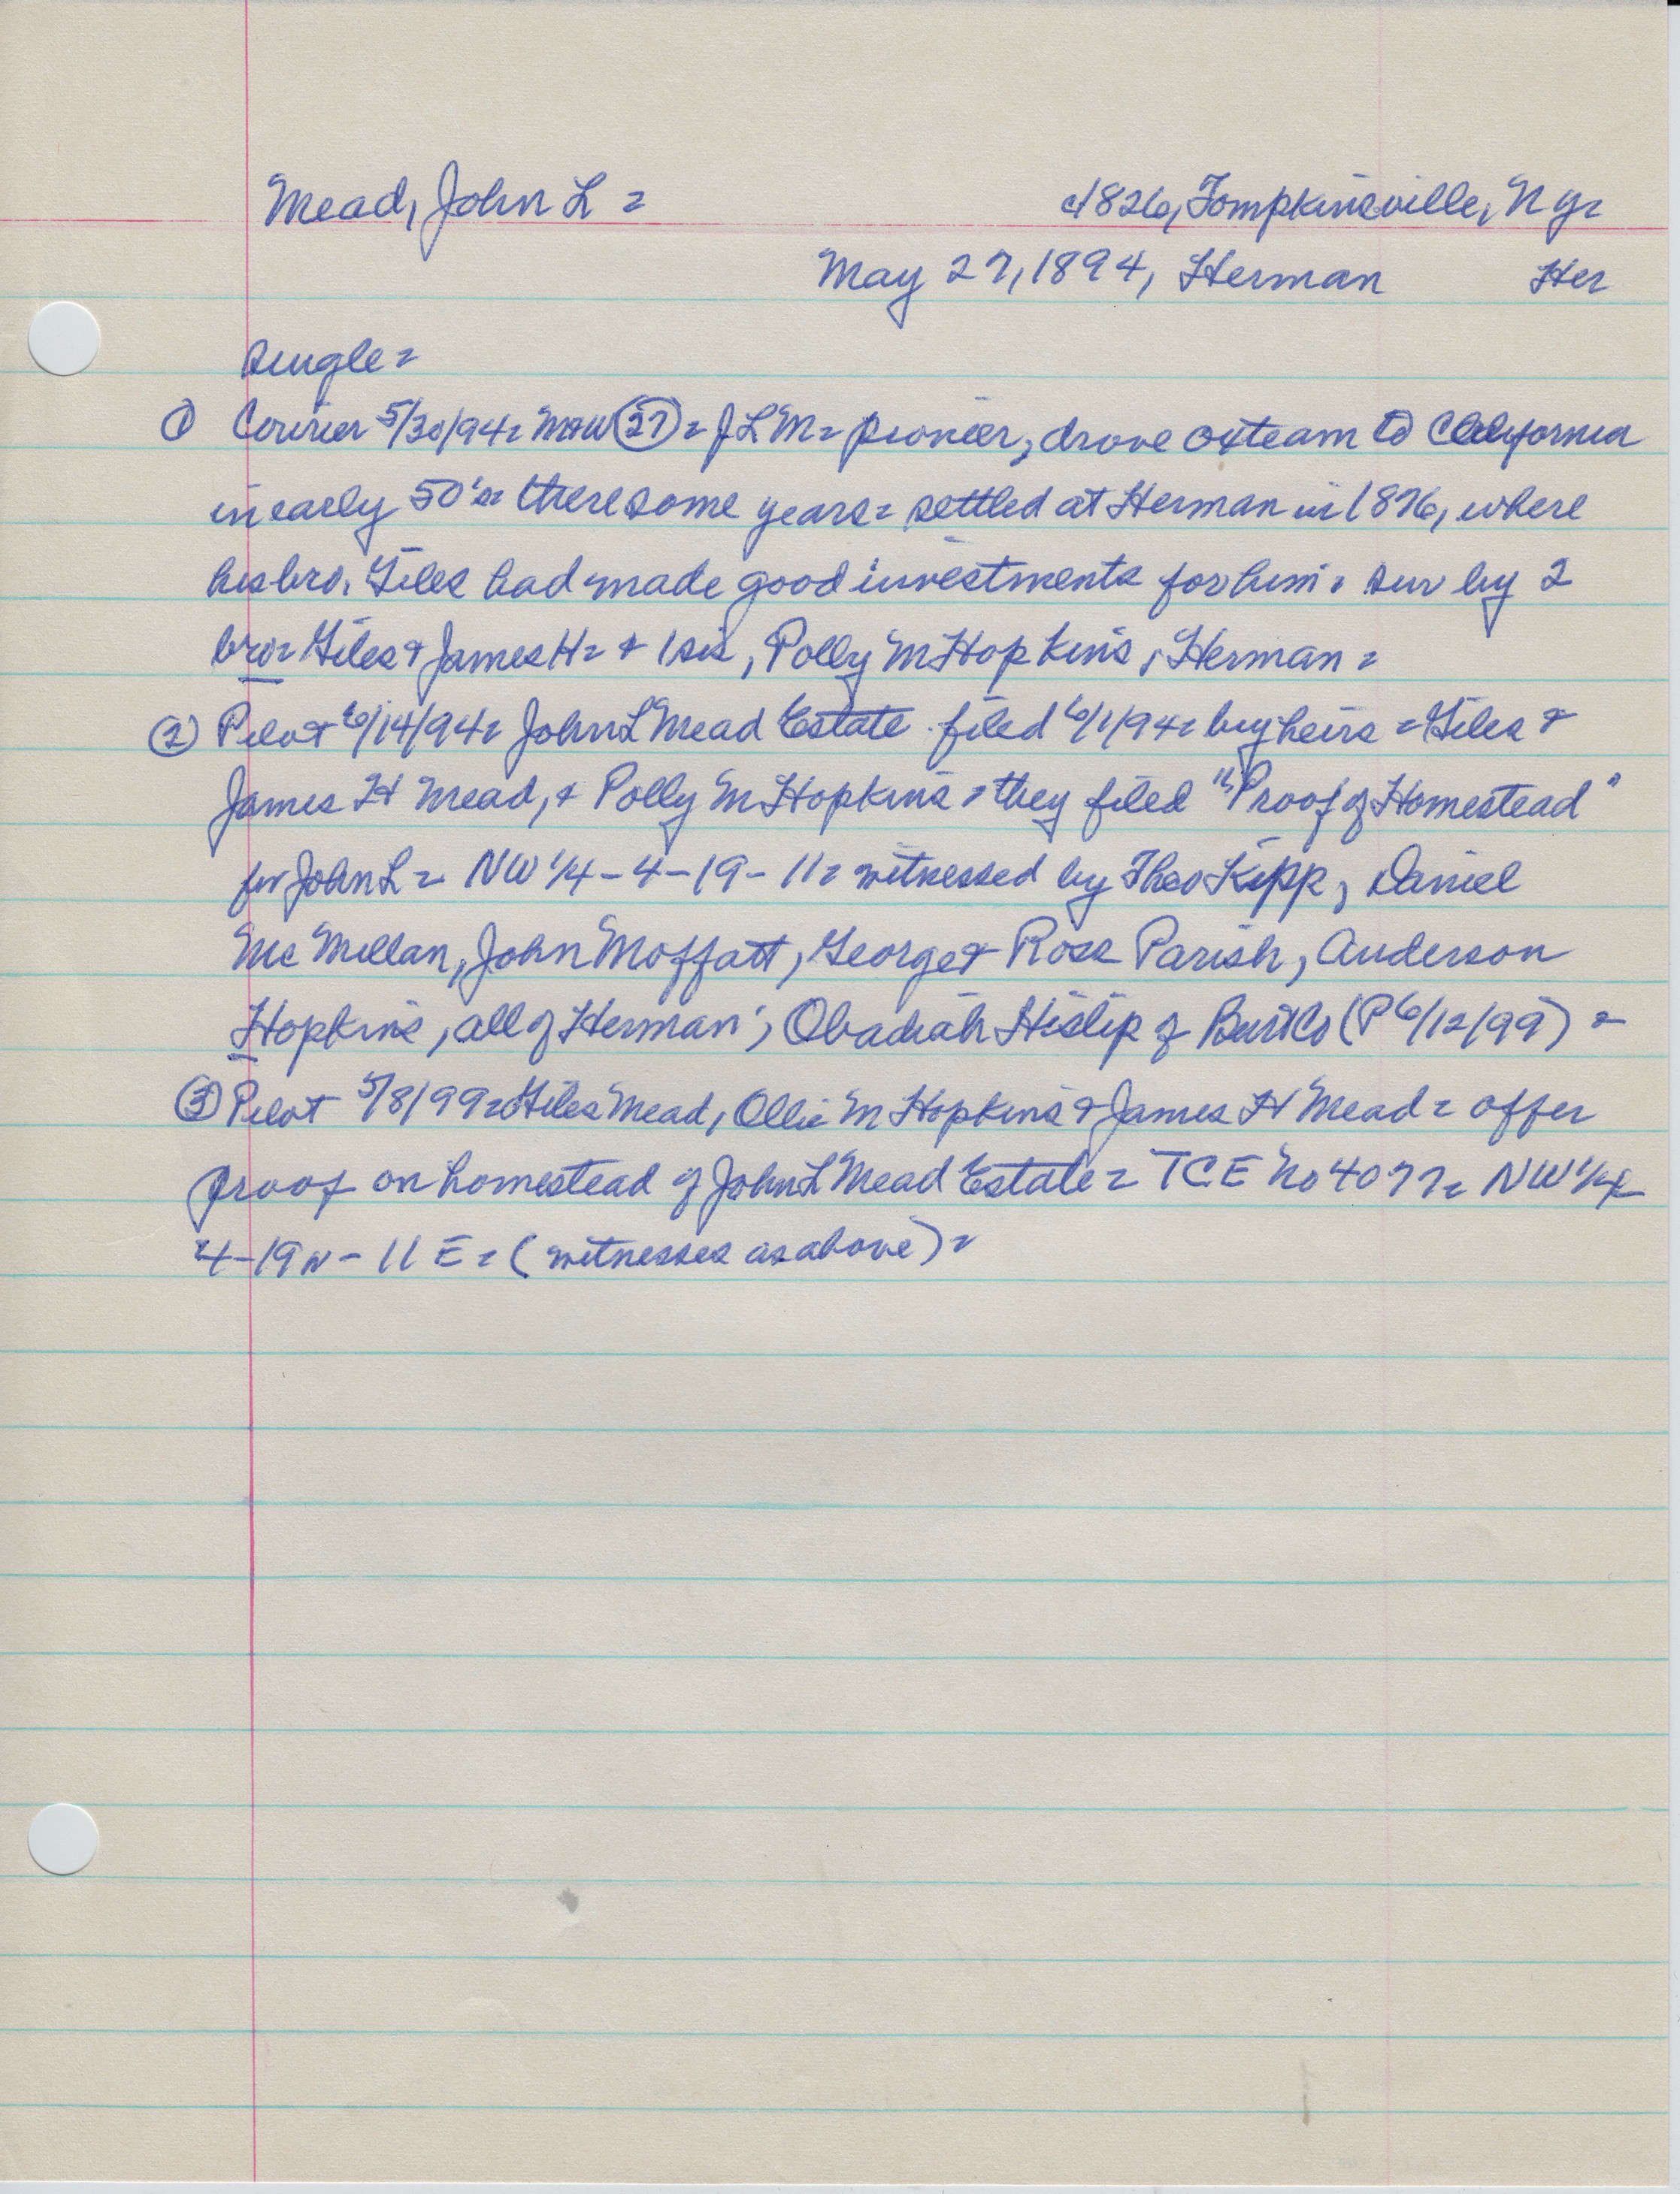 Mead, John L = c1826, Tompkinsville, N Y=
May 27, 1894, Herman Her
Single=
① Courier 5/30/94= (27)= J L M= pioneer, drove oxteam to California
in early 50's= there some years= settled at Herman in 1876, where
his bro, Giles had made good investments for him= sur by 2
bro= Giles & James H= & 1 sis, Polly M Hopkins, Herman=
② Pilot 6/14/94= John L Mead Estate filed 6/1/94= by heirs = Giles &
James H Mead, & Polly M Hopkins = they filed "Proof of Homestead"
for John L = NW 1/4 - 4 - 19 - 11= witnessed by Theo Kipp, Daniel
Mc Millan, John Moffatt, George & Ross Parish, Anderson
Hopkins, all of Herman; Obadiah Hislip of Burt Co (P 6/12/99) =
③ Pilot 5/8/99= Giles Mead, Ollie M Hopkins & James H Mead = offer
proof on homestead of John L Mead Estate = TCE No 4077= NW 1/4
4-19N - 11 E = (witnesses as above) =